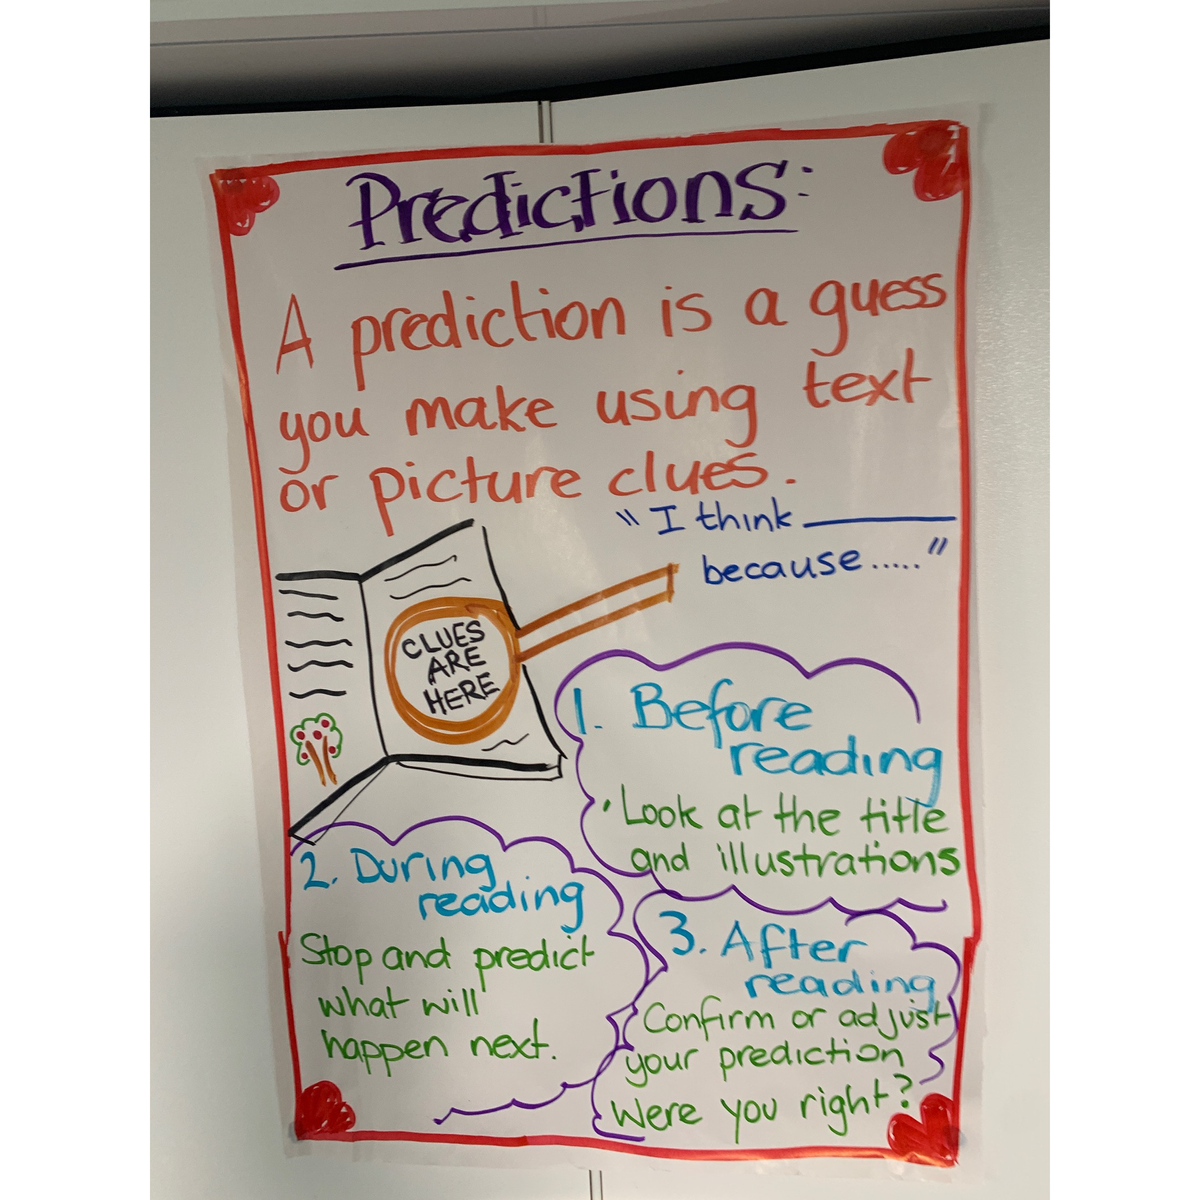 Predictions:
A prediction is a guess
you make using text
or picture clues.
"I think ________
because....."
CLUES
ARE
HERE
1. Before
reading
• Look at the title
and illustrations
2. During
reading
Stop and predict
what will
happen next.
3. After
reading
Confirm or adjust
your prediction
Were you right?